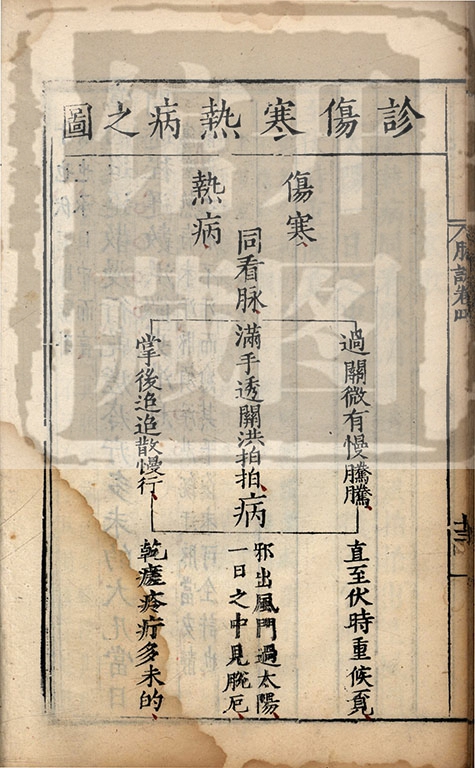 診傷寒熱病之圖
傷寒
熱病
同看脉
過關微有慢騰騰
滿手透關洪拍拍
病
掌後迢迢散慢行
直至伏時重候覔
邪出風門過太陽
一日之中見脫厄
乾瘥疼疔多未的
脉訣卷四